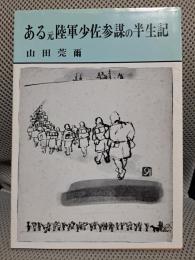 ある元陸軍少佐参謀の半生記
山田莞爾